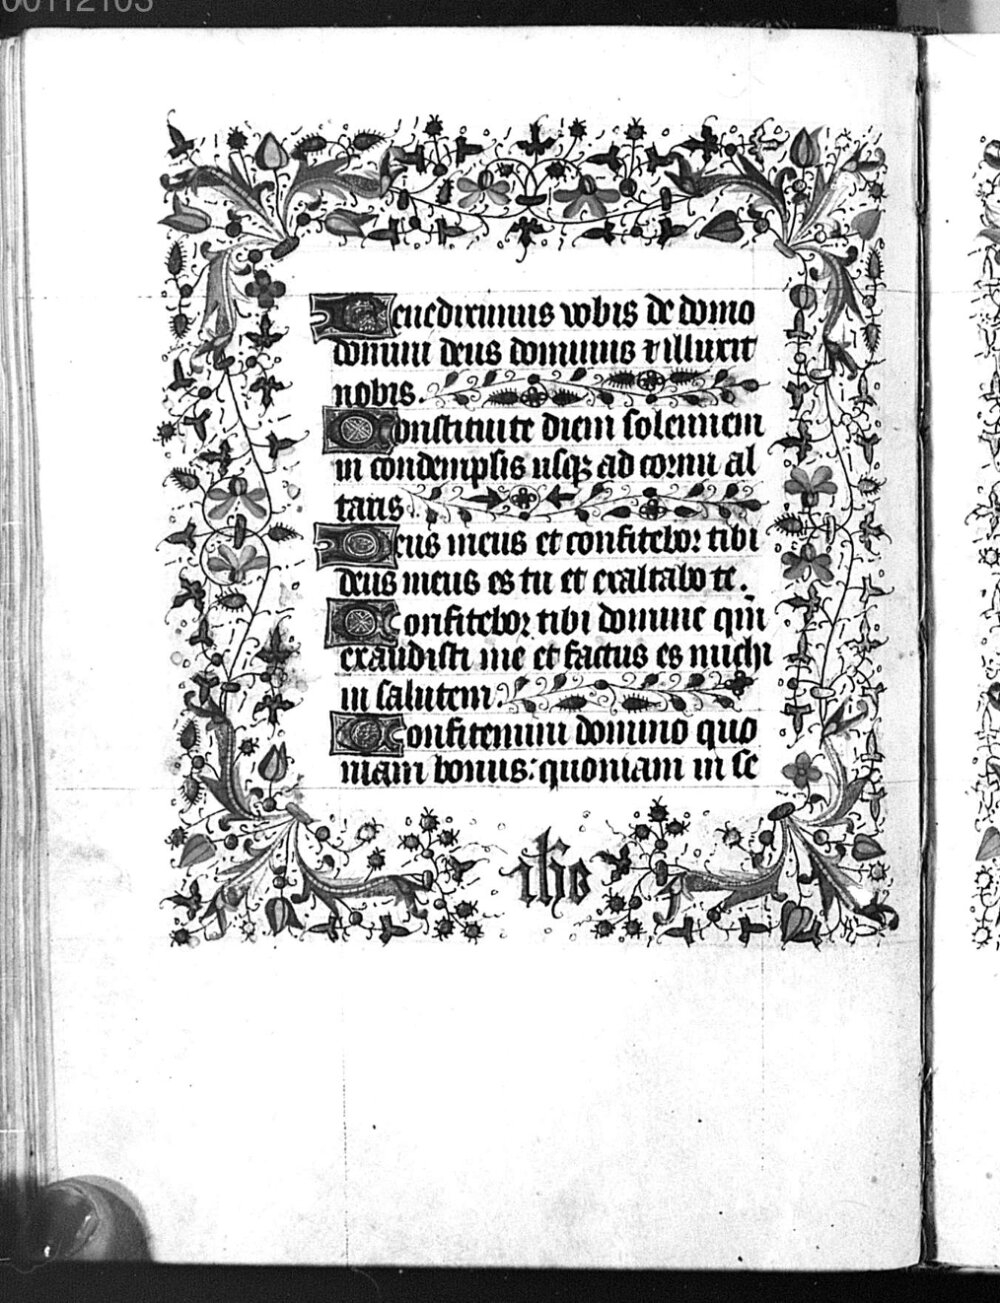 00112103
Benediximus vobis de domo
domini deus dominus ⁊ illuxit
nobis.
Constituite diem solennem
in condempsis usqꝫ ad cornu al
taris.
Deus meus et confitebor tibi
deus meus es tu et exaltabo te.
Confitebor tibi domine qm̄
exaudisti me et factus es michi
in salutem.
Confitemini domino quo
niam bonus: quoniam in se
ihs